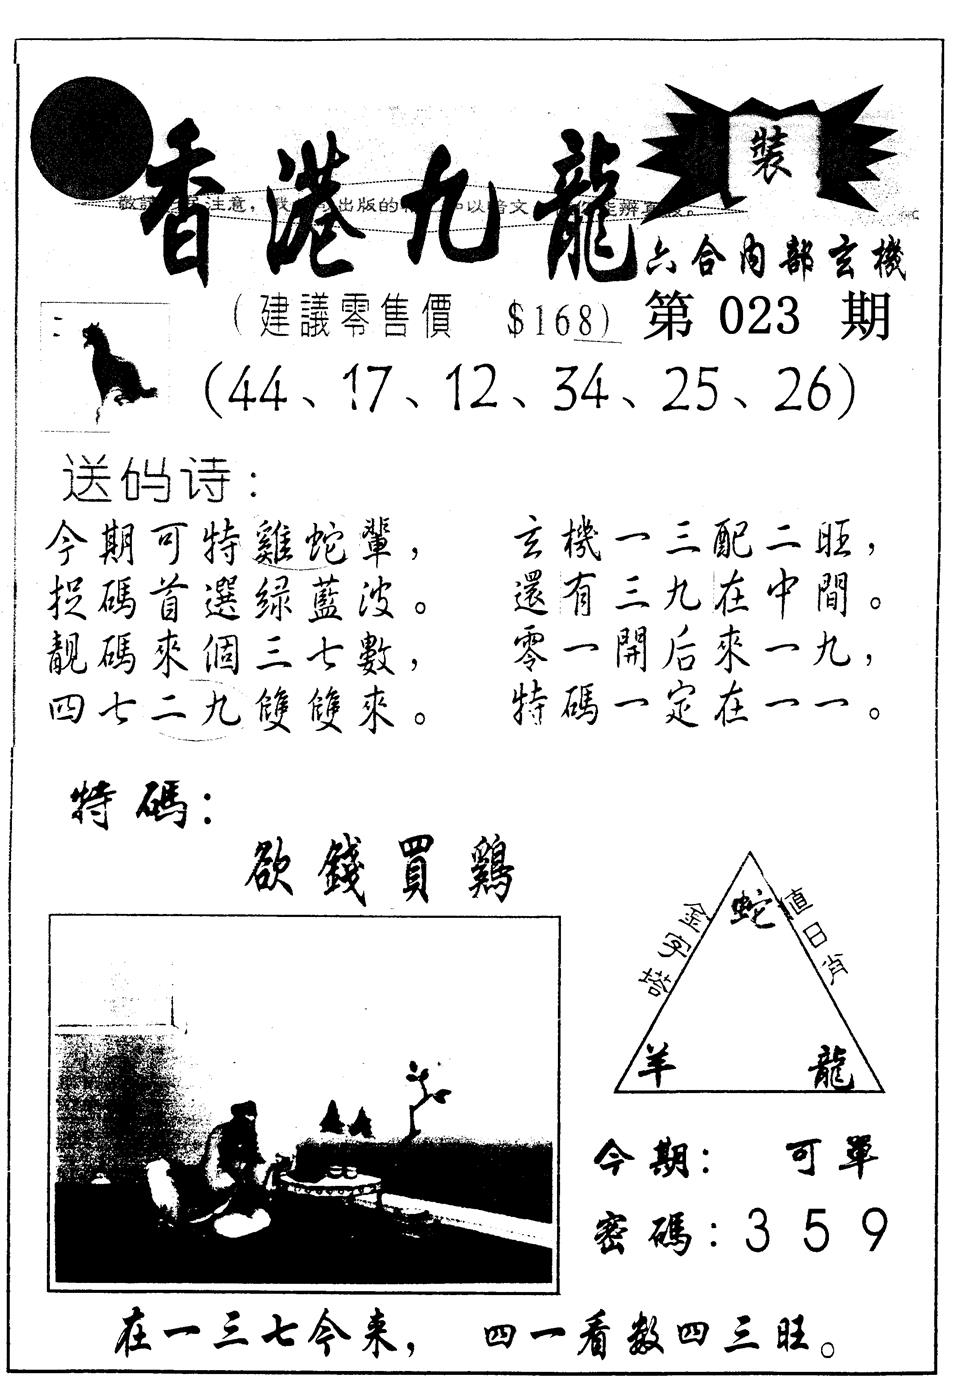 香港九龍
裝
六合內部玄機
（建議零售價 $168）第 023 期
（44、17、12、34、25、26）
送码诗：
今期可特雞蛇輩，
捉碼首選绿藍波。
靚碼來個三七數，
四七二九雙雙來。
玄機一三配二旺，
還有三九在中間。
零一開后來一九，
特碼一定在一一。
特碼：
欲錢買鷄
金字塔
值日肖
蛇
羊 龍
今期： 可單
密碼：3 5 9
在一三七今来， 四一看数四三旺。